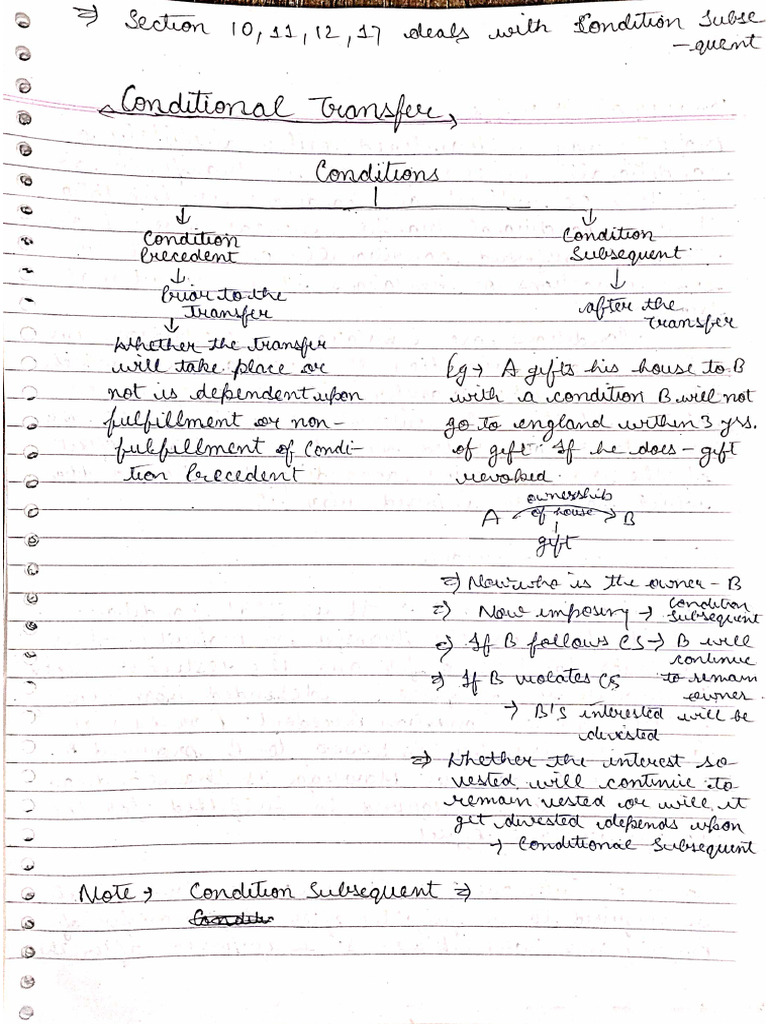 => Section 10, 11, 12, 17 deals with Condition Subse
-quent
Conditional Transfer
Conditions
Condition
Precedent
Prior to the
transfer
Whether the transfer
will take place or
not is dependent upon
fulfillment or non-
fulfillment of Condi-
tion Precedent
Condition
Subsequent
after the
transfer
Eg → A gifts his house to B
with a condition B will not
go to england within 3 yrs.
of gift. If he does - gift
revoked.
ownership
A of house B
gift
=> Now who is the owner - B
=> Now imposing → Condition
Subsequent
=> If B follows CS → B will
continue
to remain
owner.
=> If B violates CS
→ B's interested will be
divested
=> Whether the interest so
vested will continue to
remain vested or will it
get divested depends upon
→ Conditional Subsequent
Note → Condition Subsequent =>